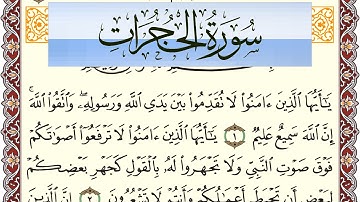 سُورَةُ الحُجُرَاتِ
يَٰٓأَيُّهَا ٱلَّذِينَ ءَامَنُوا۟ لَا تُقَدِّمُوا۟ بَيْنَ يَدَىِ ٱللَّهِ وَرَسُولِهِۦ ۖ وَٱتَّقُوا۟ ٱللَّهَ ۚ
إِنَّ ٱللَّهَ سَمِيعٌ عَلِيمٌ ١ يَٰٓأَيُّهَا ٱلَّذِينَ ءَامَنُوا۟ لَا تَرْفَعُوٓا۟ أَصْوَٰتَكُمْ
فَوْقَ صَوْتِ ٱلنَّبِىِّ وَلَا تَجْهَرُوا۟ لَهُۥ بِٱلْقَوْلِ كَجَهْرِ بَعْضِكُمْ
لِبَعْضٍ أَن تَحْبَطَ أَعْمَٰلُكُمْ وَأَنتُمْ لَا تَشْعُرُونَ ٢ إِنَّ ٱلَّذِينَ